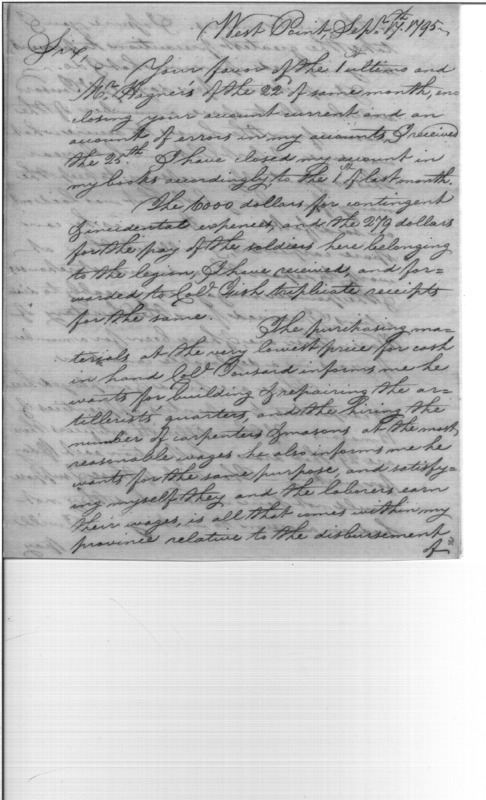 West Point Sepr. 17th. 1795.
Sir,
Your favor of the 1st ultimo and
Mr. Hagner's of the 22 of same month, en
closing your account current and an
account of errors in my accounts, I received
the 25th. I have closed my account in
my books accordingly, to the 1st. of last month.
The 6000 dollars for contingent
& incidental expences, and the 279 dollars
for the pay of the soldiers here belonging
to the legion, I have received, and for=
warded to Colo. Gish triplicate receipts
for the same.
The purchasing ma=
terials at the very lowest price for cash
in hand Colo. informs me he
wants for building & repairing the ar=
tillerists quarters, and the hiring the
number of carpenters & masons at the most
reasonable wages he also informs me he
wants for the same purpose, and satisfy=
ing myself they and the laborers earn
their wages, is all that comes within my
province relative to the disbursement
of